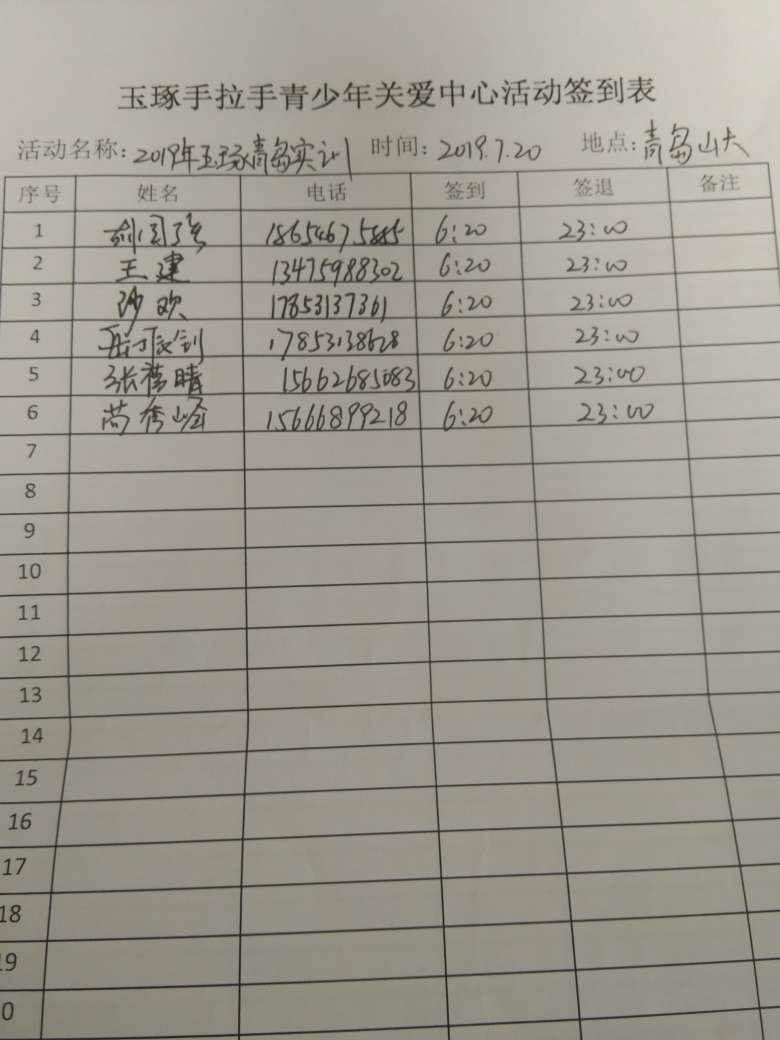 玉琢手拉手青少年关爱中心活动签到表
活动名称：2019年玉琢青岛实训 时间：2019.7.20 地点：青岛山大
序号 姓名 电话 签到 签退 备注
1 6:20 23:00
2 王建 13475988302 6:20 23:00
3 沙欢 17853137361 6:20 23:00
4 17853138628 6:20 23:00
5 晴 15662685083 6:20 23:00
6 尚秀峰 15666899218 6:20 23:00
7
8
9
10
11
12
13
14
15
16
17
18
19
0